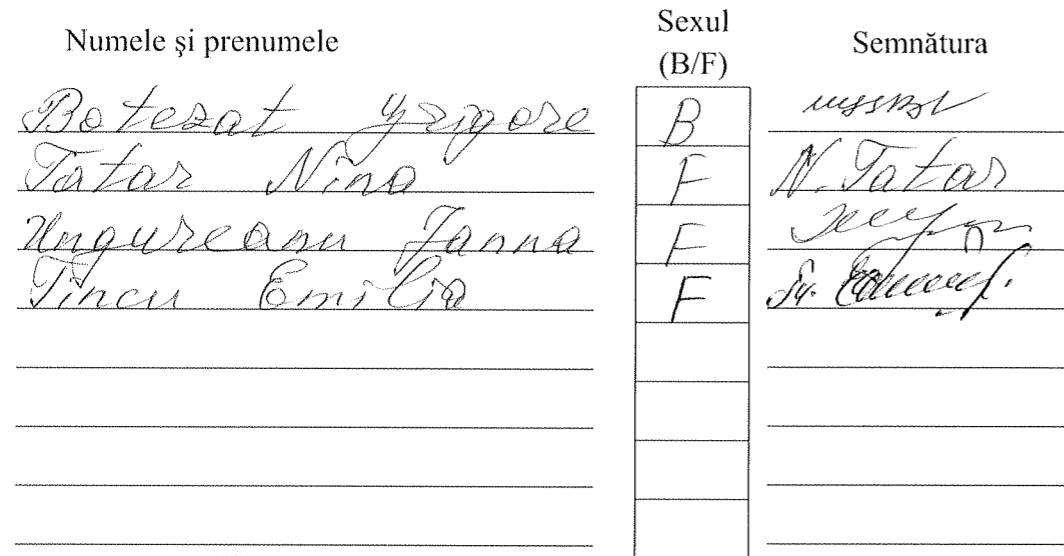 Numele și prenumele Sexul (B/F) Semnătura
Botezat Grigore B
Tatar Nina F N. Tatar
Ungureanu Janna F
Tincu Emilia F